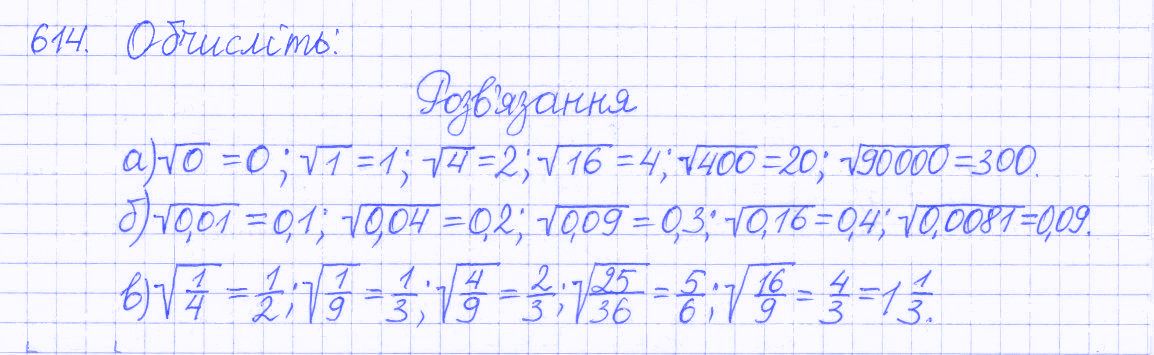 614. Обчисліть:
Розв'язання
а) √0 = 0; √1 = 1; √4 = 2; √16 = 4; √400 = 20; √90000 = 300.
б) √0,01 = 0,1; √0,04 = 0,2; √0,09 = 0,3; √0,16 = 0,4; √0,0081 = 0,09.
в) √(1/4) = 1/2; √(1/9) = 1/3; √(4/9) = 2/3; √(25/36) = 5/6; √(16/9) = 4/3 = 1 1/3.